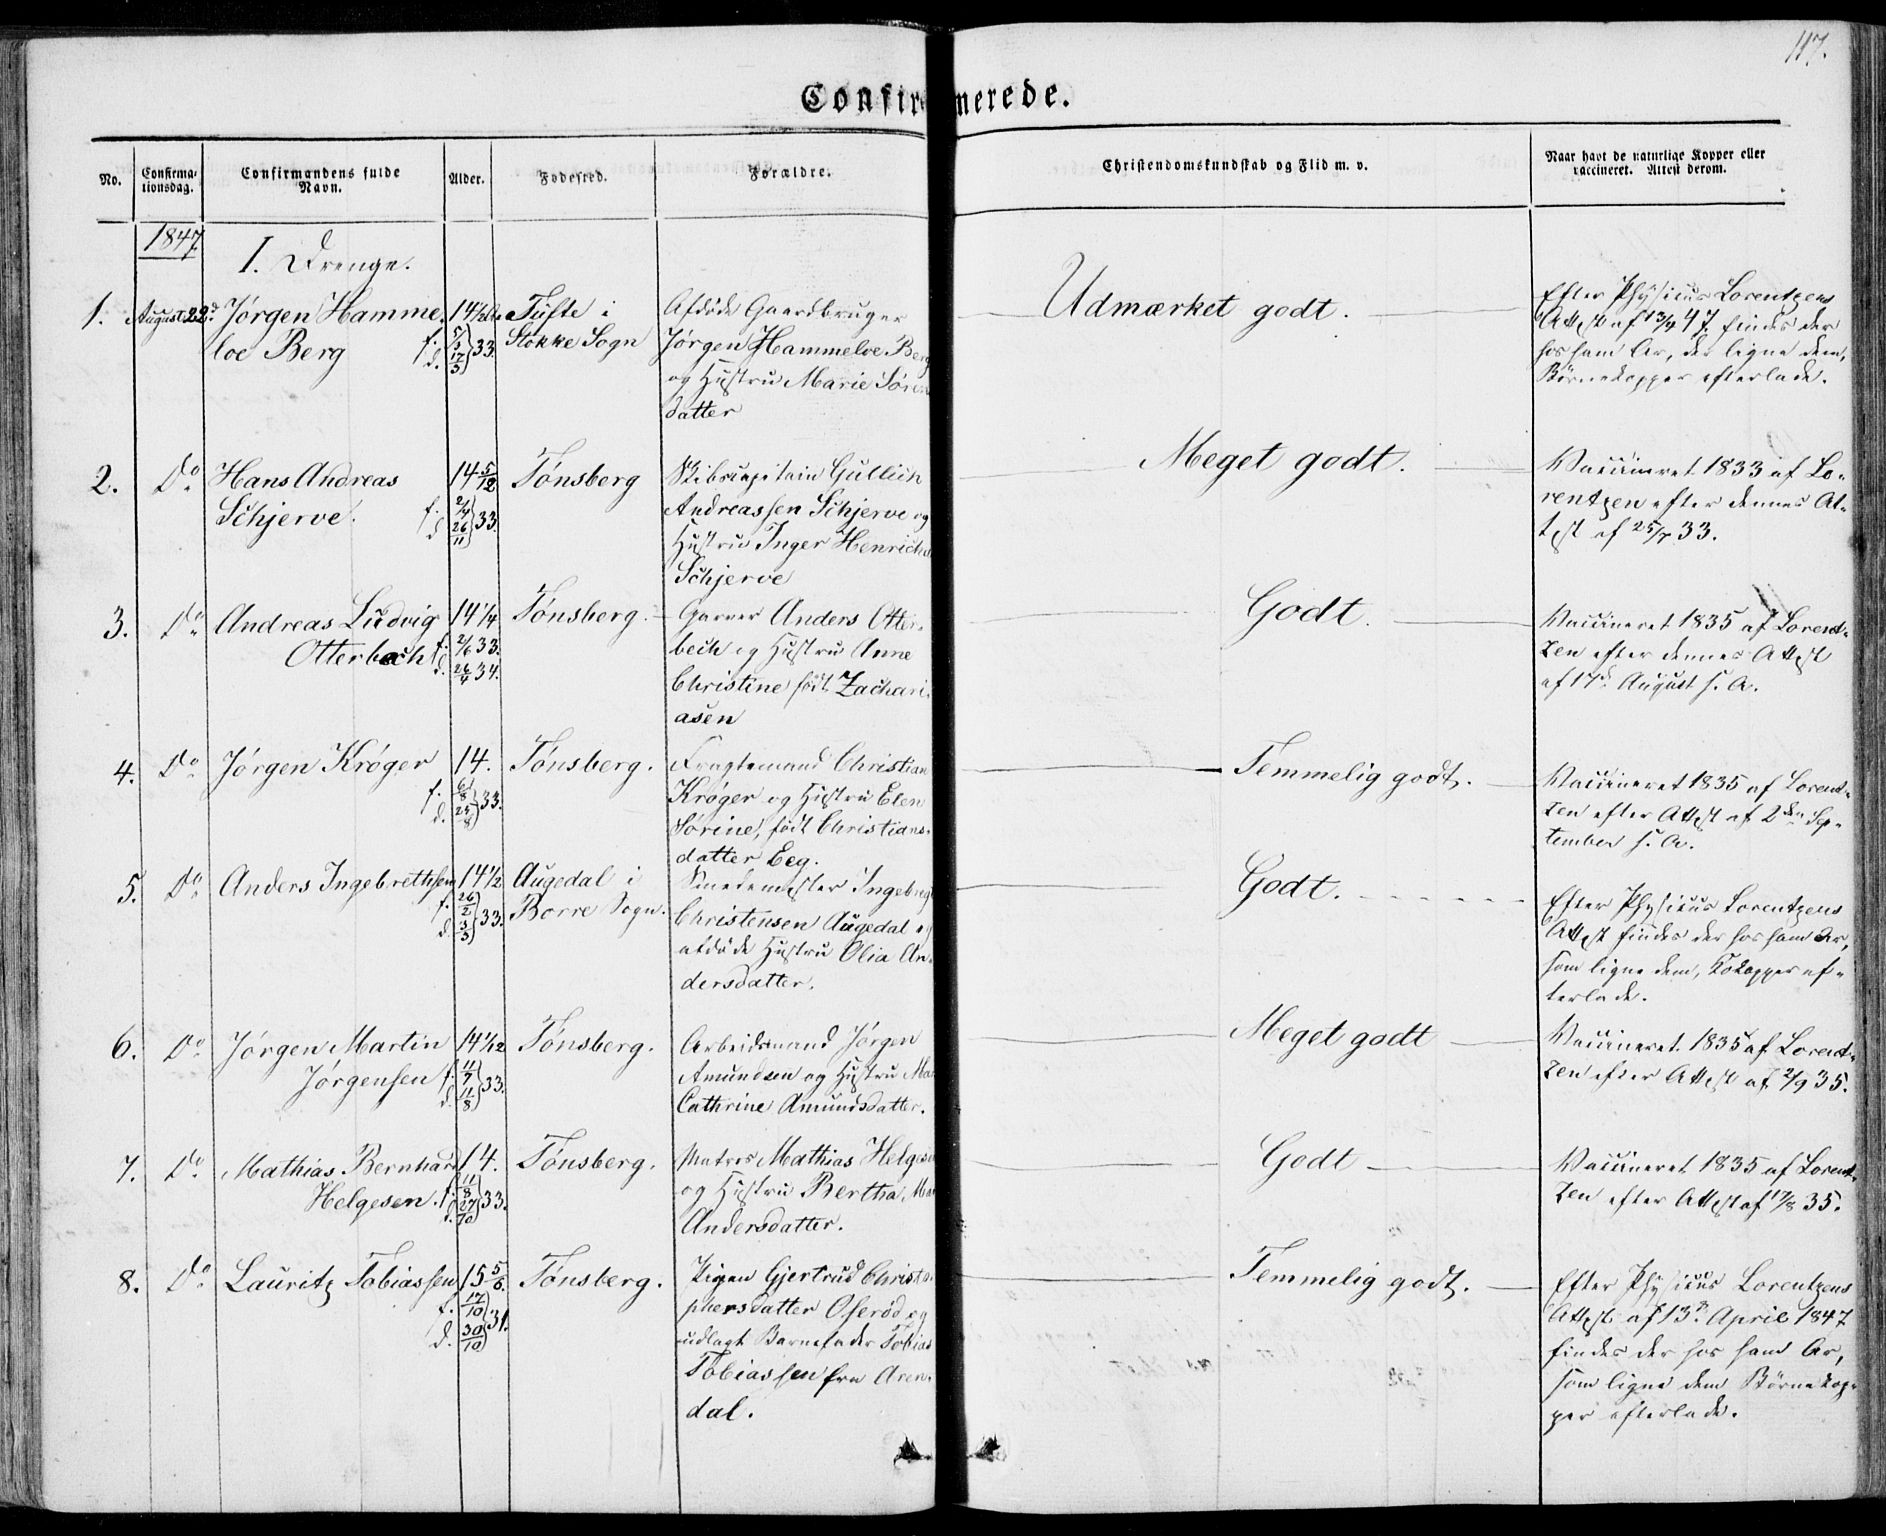 117.
Confirmerede.
No.
Confirma-
tionsdag.
Confirmandens fulde
Navn.
Alder.
Fødested.
Forældre.
Christendomskundskab og Flid m. v.
Naar havt de naturlige Kopper eller
vaccineret. Attest derom.
1847.
I. Drenge.
1.
August 22d
Jørgen Hamme
loe Berg
f. 5/5
d. 17/5 } 33.
Tufte i
Stokke Sogn
Afdøde Gaardbruger
Jørgen Hammeloe Berg
og Hustru Marie Søren
datter
Udmærket godt.
Efter Physicus Lorentzens
Attest af 13/4 47 findes der
hos ham Ar, der ligne dem,
Børnekopper efterlade.
2.
Do
Hans Andreas
Schjerve.
14 5/12
f.
d. 26/11 } 33.
Tønsberg
Skibscapitain Gullich
Andreassen Schjerve og
Hustru Inger Henrichs
Schjerve
Meget godt.
Vaccineret 1833 af Lo-
rentzen efter dennes At-
test af 25/7 33.
3.
Do
Andreas Ludvig
Otterbech
14 1/4
f. 2/6 33.
d. 26/4 34.
Tønsberg.
Garver Anders Otter-
bech og Hustru Anne
Christine født Zachari-
asen
Godt.
Vaccineret 1835 af Lorent-
zen efter dennes Attest
af 17d August s. A.
4.
Do
Jørgen Krøger
14.
f. 6/8
d. 25/8 } 33.
Tønsberg.
Fragtemand Christian
Krøger og Hustru Elen
Sørine, født Christians-
datter Eeg.
Temmelig godt.
Vaccineret 1835 af Lorent-
zen efter Attest af 2den Sep-
tember s. A.
5.
Do
Anders Ingebrethsen
14 1/2
f. 26/2
d. 3/3 } 33.
Augedal i
Borre Sogn.
Smedemester Ingebregt
Christensen Augedal og
afdøde Hustru Olia An-
dersdatter.
Godt.
Efter Physicus Lorentzens
Attest findes der hos ham Ar,
som ligne dem, Kokopper ef-
terlade.
6.
Do
Jørgen Martin
Jørgensen
14 1/12
f. 11/7
d. 11/8 } 33.
Tønsberg.
Arbeidsmand Jørgen
Amundsen og Hustru Mar
Cathrine Amundsdatter.
Meget godt
Vaccineret 1835 af Lorent-
zen efter Attest af 2/9 35.
7.
Do
Mathias Bernhard
Helgesen.
14.
f. 11/8
d. 27/10 } 33.
Tønsberg.
Matros Mathias Helgesen
og Hustru Bertha Mar
Andersdatter.
Godt
Vaccineret 1835 af Lorent-
zen efter Attest af 17/8 35.
8.
Do
Lauritz Tobiassen
15 5/6.
f. 17/10
d. 30/10 } 31.
Tønsberg.
Pigen Gjertrud Christo
phersdatter Oserød og
udlagt Barnefader Tobias
Tobiassen fra Aren-
dal.
Temmelig godt.
Efter Physicus Lorentzens
Attest af 13d April 1847
findes der hos ham Ar,
som ligne dem Børnekop-
per efterlade.